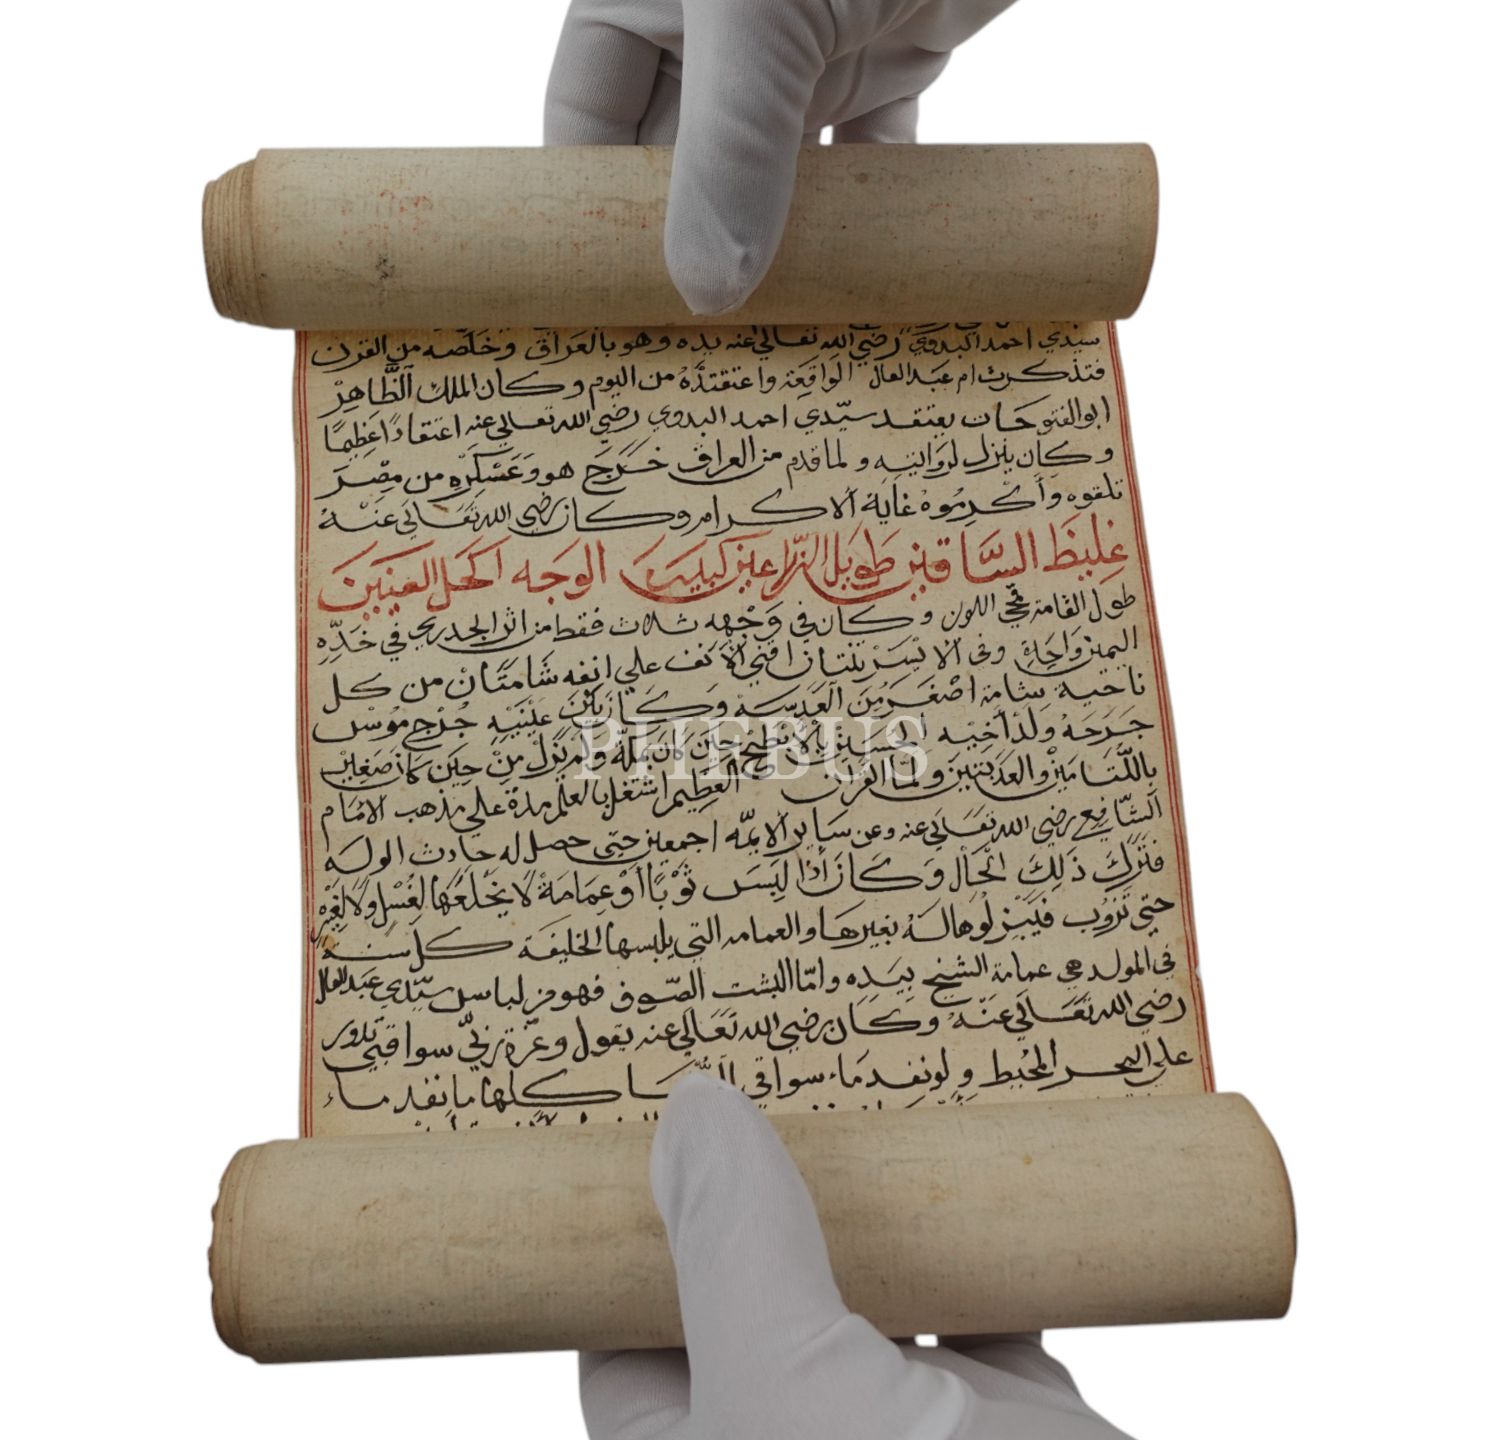 سيدي احمد البدوي رضي الله تعالي عنه يده وهو بالعراق وخلصه من القرن
فتذكرت ام عبد العال الواقعة واعتقتده من اليوم وكان الملك الظاهر
ابو الفتوحات يعتقد سيدي احمد البدوي رضي الله تعالي عنه اعتقادا عظيما
وكان ينزل لزوايته ولما قدم من العراق خرج هو وعسكره من مصر
تلقوه وأكرموه غاية الاكرام وكان رضي الله تعالي عنه
غليظ الساقين طويل الذراعين كبير الوجه اكحل العينين
طول القامة قمحي اللون وكان في وجهه ثلاث فقط من اثر الجدري في خده
اليمين واحدة وفي الايسر ثنتان اقني الانف علي انفه شامتان من كل
ناحية شامة اصغر من العدسة وكان بين عينيه جرح موس
جرحه ولد أخيه الحسين بالابطح حين كان بمكة ولم يزل من حين كان صغير
باللثامين والعذبتين ولما القران العظيم اشتغل بالعلم مدة علي مذهب الامام
الشافعي رضي الله تعالي عنه وعن ساير الايمه اجمعين حتي حصل له حادث الوله
فترك ذلك الحال وكان اذا لبس ثوبا أو عمامة لا يخلعها لغسل ولا لغيره
حتي تزوب فيبزلوها له بغيرها والعمامه التي يلبسها الخليفة كل سنة
في المولد هي عمامة الشيخ بيده واما البشت الصوف فهو من لباس سيدي عبد العال
رضي الله تعالي عنه وكان رضي الله تعالي عنه يقول وعزة ربي سواقي تدور
علي البحر المحيط ولو نفد ماء سواقي كلها ما نفد ماء
PHEBUS